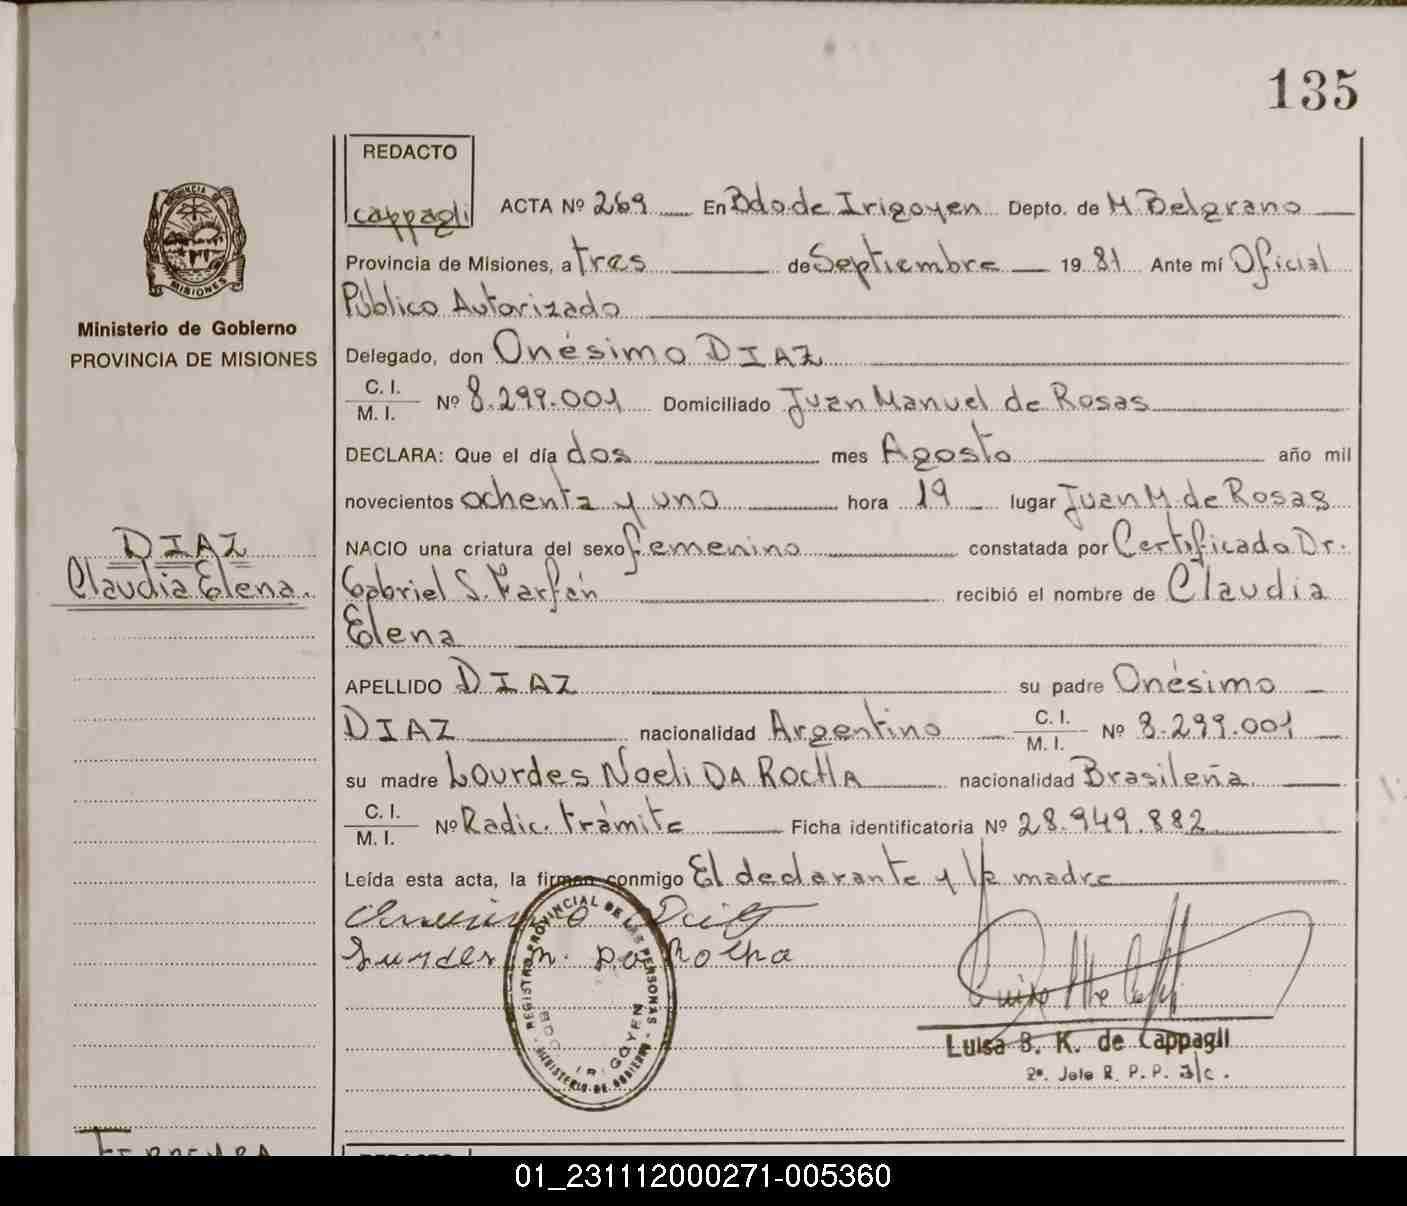 135
REDACTO
Cappagli
ACTA Nº 269 En Bdo. de Irigoyen Depto. de M. Belgrano
Provincia de Misiones, a tres de Septiembre 19 81 Ante mí Oficial
Público Autorizado
Delegado, don Onésimo DIAZ
C. I.
M. I. Nº 8.299.001 Domiciliado Juan Manuel de Rosas
DECLARA: Que el día dos mes Agosto año mil
novecientos ochenta y uno hora 19 lugar Juan M. de Rosas
NACIO una criatura del sexo femenino constatada por Certificado Dr.
Gabriel S. Farfán recibió el nombre de Claudia
Elena
APELLIDO DIAZ su padre Onésimo
DIAZ nacionalidad Argentino C. I. M. I. Nº 8.299.001
su madre Lourdes Noeli DA ROCHA nacionalidad Brasileña
C. I.
M. I. Nº Radic. trámite Ficha identificatoria Nº 28.949.882
Leída esta acta, la firman conmigo El declarante y la madre
Onesimo Diaz
Lurdes N. Da Rocha
REGISTRO PROVINCIAL DE LAS PERSONAS
MINISTERIO DE GOBIERNO
IRIGOYEN
Luisa B. K. de Cappagli
2º. Jefe R. P. P. a/c.
PROVINCIA DE
MISIONES
Ministerio de Gobierno
PROVINCIA DE MISIONES
DIAZ
Claudia Elena.
FERREYRA
REDACTO
01_231112000271-005360